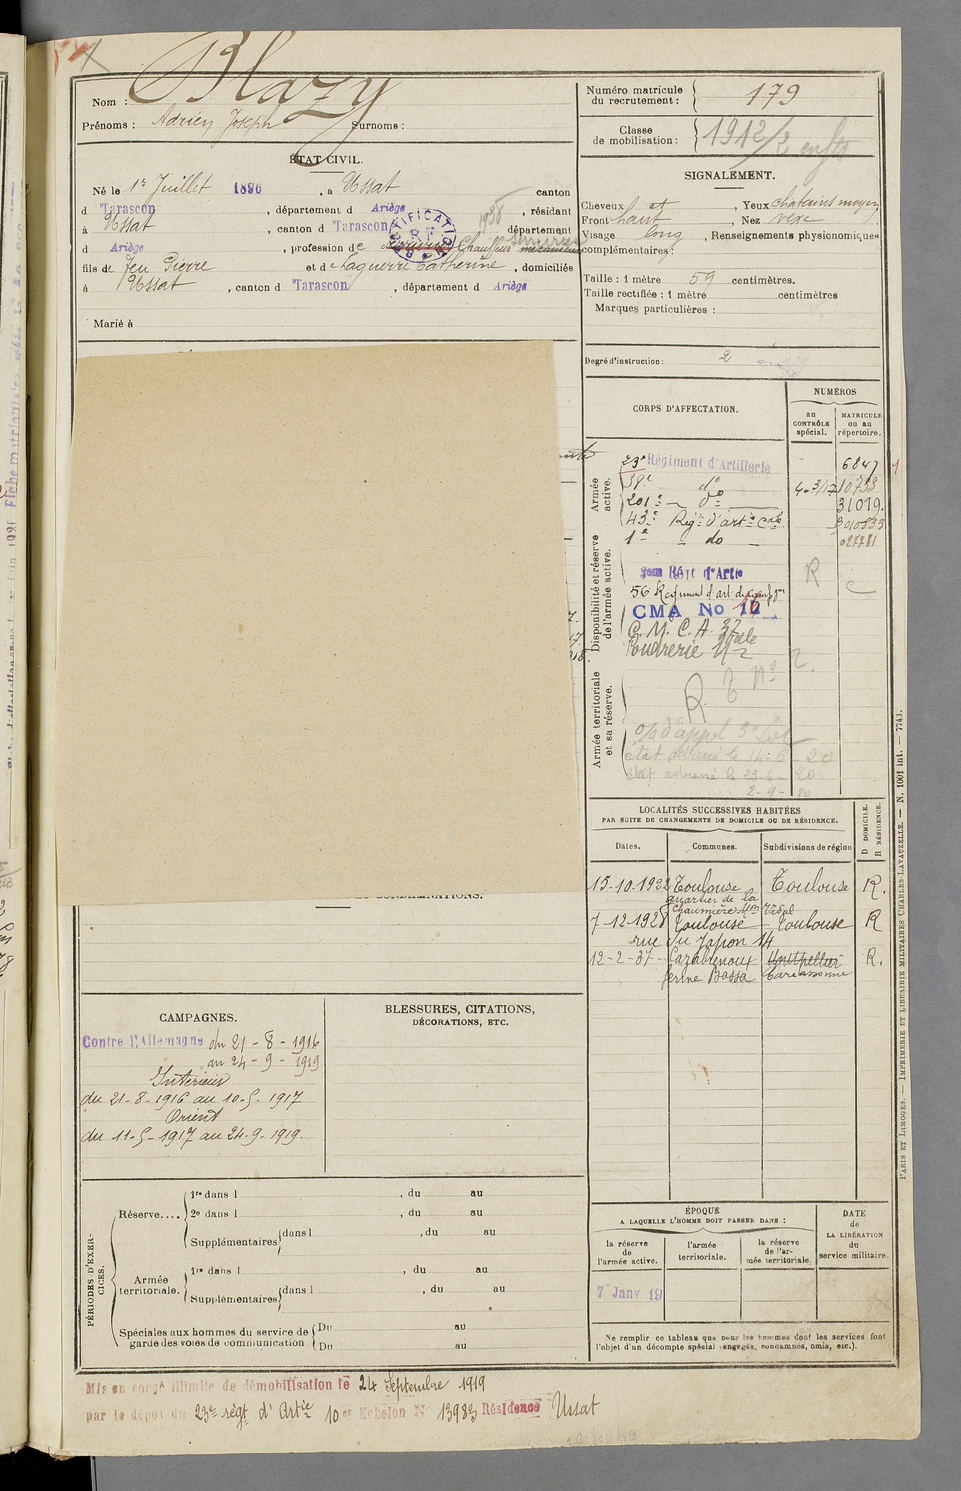 Blazy
Nom :
Prénoms : Adrien Joseph Surnoms :
ÉTAT CIVIL.
Né le 1er Juillet 1896, à Ussat canton
d Tarascon, département d Ariège, résidant
à Ussat, canton d Tarascon 1938 département
d Ariège, profession de Chauffeur mécanicien
fils de feu Pierre et de Laguerre Catherine, domiciliés
à Ussat, canton d Tarascon, département d Ariège
Marié à
Numéro matricule
du recrutement : 179
Classe
de mobilisation : 1912/2 enfts
SIGNALEMENT.
Cheveux ct, Yeux chatains moyen
Front haut, Nez vexe
Visage long, Renseignements physionomiques
complémentaires :
Taille : 1 mètre 59 centimètres.
Taille rectifiée : 1 mètre centimètres
Marques particulières :
Degré d'instruction : 2
CORPS D'AFFECTATION.
NUMÉROS
au
CONTRÔLE
spécial.
MATRICULE
ou au
répertoire.
Armée
active.
23e Régiment d'Artillerie 6847
38e do 4-3/17 10733
201e do 31019.
43e Rigt d'arte Cale
1e do
Disponibilité et réserve
de l'armée active.
Régt d'Artie R
56 Regiment d'art de campgne C
CMA No 12
C. M. C. A. 37
Poudrerie Nale
Armée territoriale
et sa réserve.
R
o/s d'appel 3e
état adressé le 14-6-20
état adressé le 23-6-20
2-9-20
LOCALITÉS SUCCESSIVES HABITÉES
PAR SUITE DE CHANGEMENTS DE DOMICILE OU DE RÉSIDENCE.
D DOMICILE.
R RÉSIDENCE.
Dates. Communes. Subdivisions de région
15-10-1922 Toulouse Toulouse R.
quartier de la
chaumière Mon Vidal
7-12-1928 Toulouse Toulouse R
rue du Japon 14
12-2-37 Montpellier R.
ferme Bassa Carcassonne
CONDAMNATIONS.
CAMPAGNES.
Contre l'Allemagne du 21-8-1916
au 24-9-1919
Intérieur
du 21-8-1916 au 10-5-1917
Orient
du 11-5-1917 au 24-9-1919.
BLESSURES, CITATIONS,
DÉCORATIONS, ETC.
PÉRIODES D'EXER-
CICES.
Réserve....
1re dans l , du au
2e dans l , du au
Supplémentaires dans l , du au
Armée
territoriale.
1re dans l , du au
Supplémentaires dans l , du au
Spéciales aux hommes du service de
garde des voies de communication
Du au
Du au
ÉPOQUE
A LAQUELLE L'HOMME DOIT PASSER DANS :
la réserve
de
l'armée active.
l'armée
territoriale.
la réserve
de l'ar-
mée territoriale.
DATE
de
LA LIBÉRATION
du
service militaire.
7 Janv 19
Ne remplir ce tableau que pour les hommes dont les services font
l'objet d'un décompte spécial (engagés, condamnés, omis, etc.).
Mis en congé illimité de démobilisation le 24 Septembre 1919
par le dépôt du 23e régt d'Artie 10er Echelon No 13983 Résidence Ussat
PARIS ET LIMOGES. — IMPRIMERIE ET LIBRAIRIE MILITAIRES CHARLES-LAVAUZELLE. — N. 1001 int. — 7743.